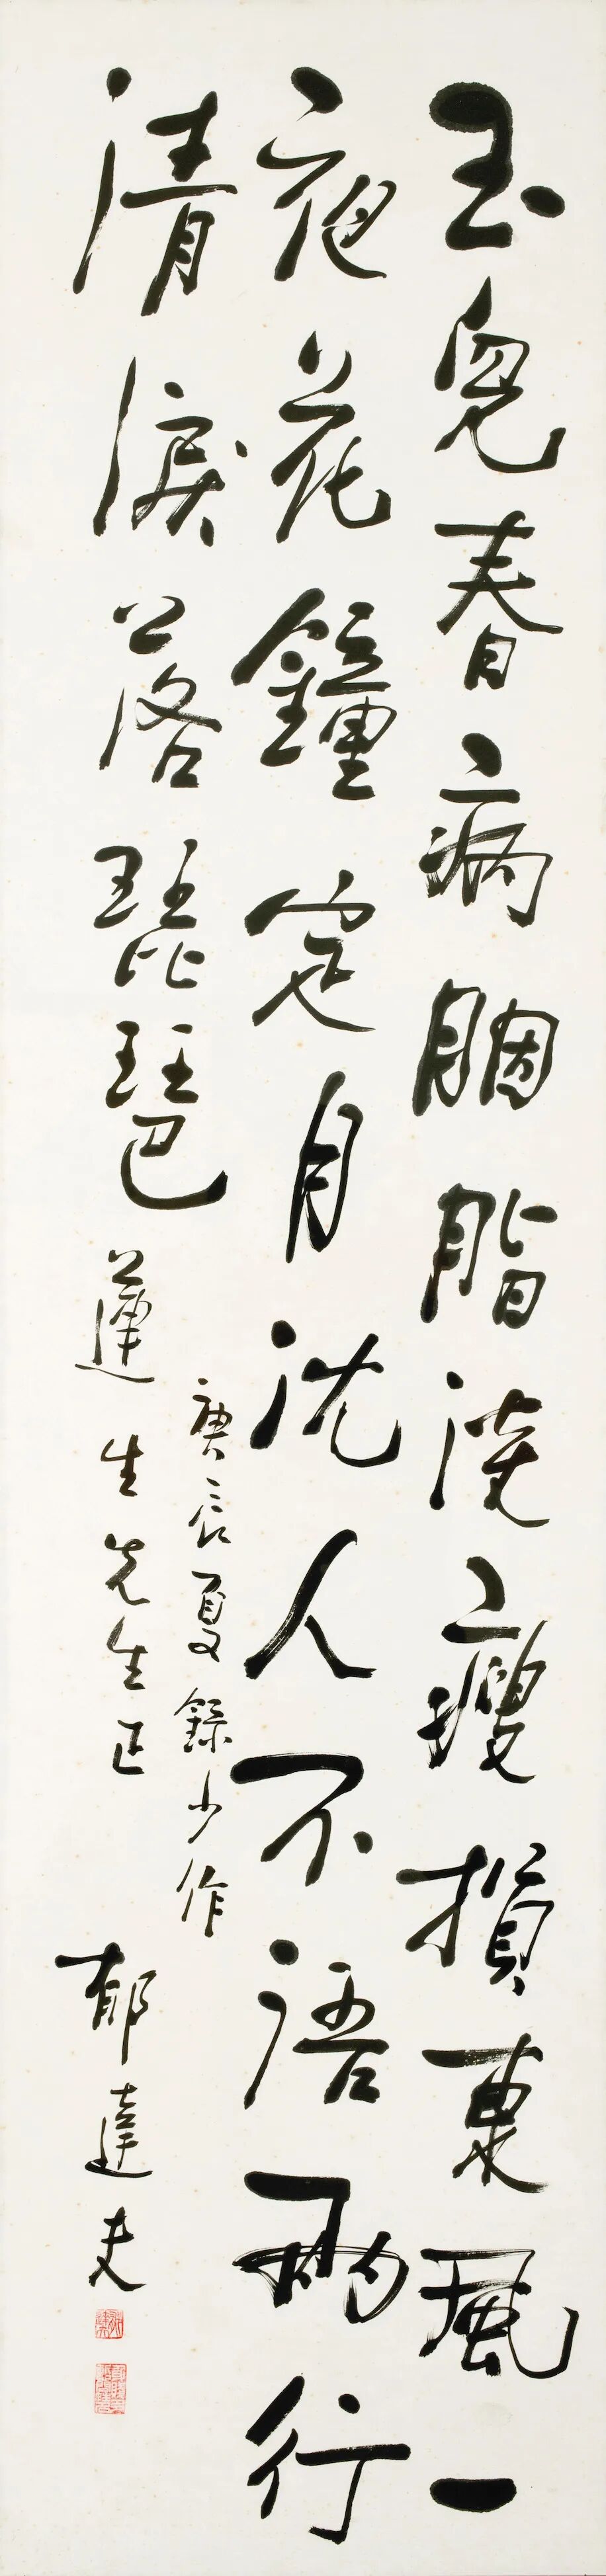 玉兒春病胭脂淡瘦損東風一
夜花鐘定月沈人不語兩行
清淚落琵琶
庚辰夏錄少作
蓮生先生正
郁達夫